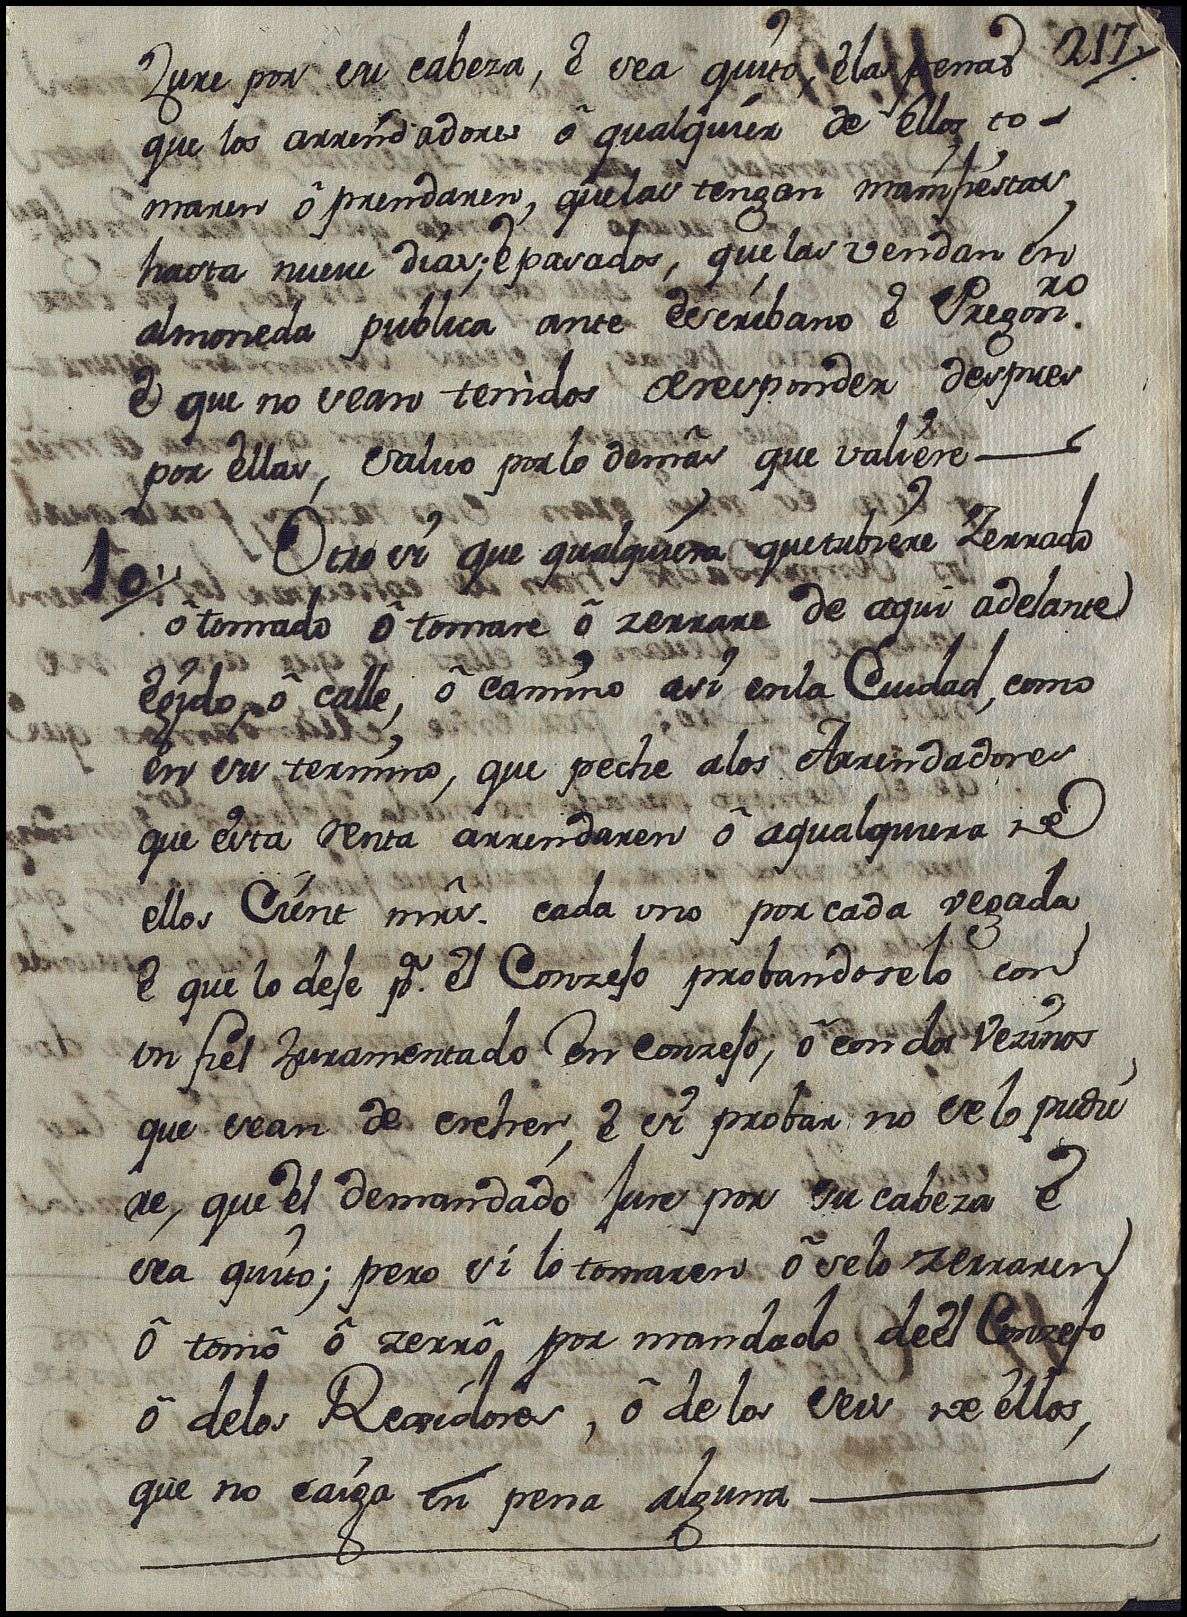 217.
Jure por su cabeza, é sea quito, é las penas
que los arrendadores ô qualquier de ellos to-
maren ô prendaren, que las tengan manifiestas
hasta nueve dias; é pasados, que las vendan en
almoneda publica ante escribano é Pregon.ro
é que no sean tenidos de responder despues
por ellas, salvo por lo demâs que valiére
10. Otro si que qualquiera que tubiére Zerrado
ô tomado ô tomare ô zerrare de aqui adelante
égido, ô calle, ô camino asi en la Ciudad, como
en su termino, que peche a los Arrendadores
que ésta renta arrendaren ô a qualquiera de
ellos Cient mrs. cada uno por cada vegada
é que lo dese pa. él Conzejo probandoselo con
un fiel Juramentado en conzejo, ô con dos Vezinos
que sean de creher, é si probar no se lo pudie
re, que él demandado Jure por su cabeza é
sea quito; pero si lo tomaren ô se lo zerraren
ô tomô ô zerrô por mandado de él Conzejo
ô de los Rexidores, ô de los seis de éllos,
que no caiga en pena alguna